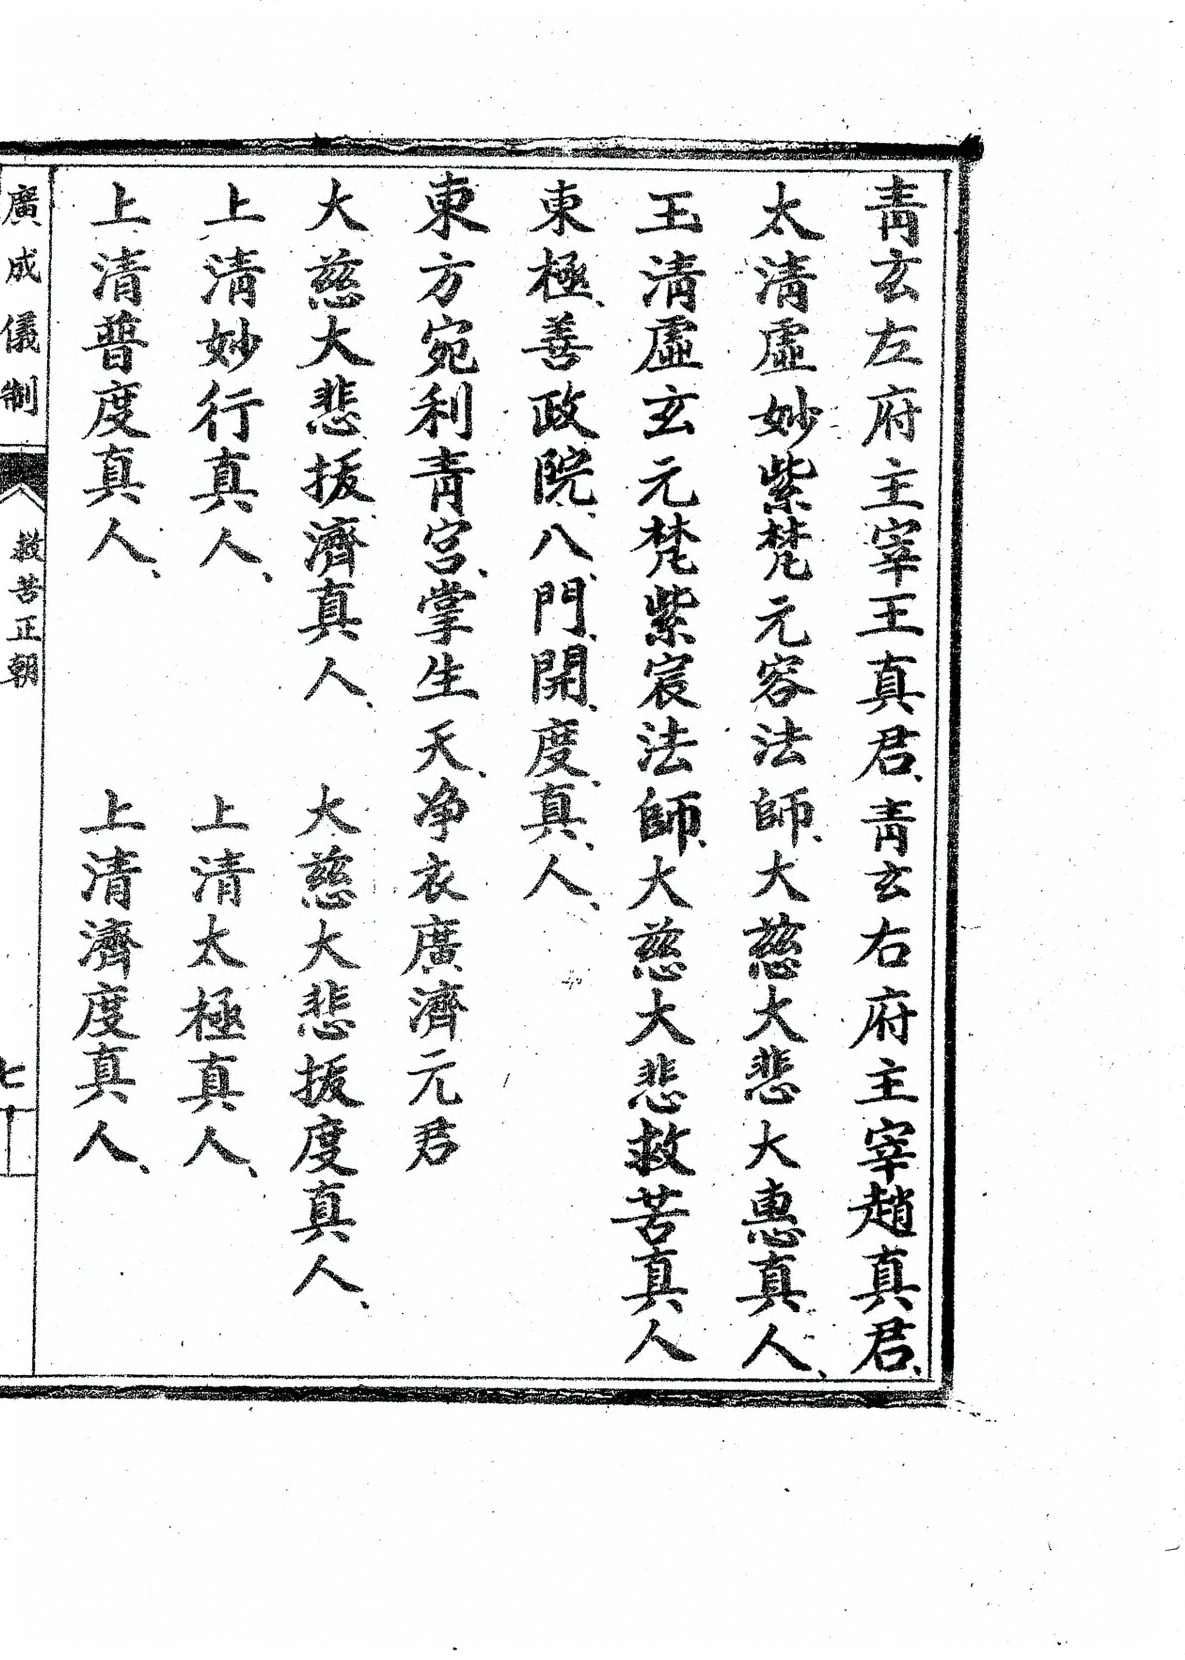 青玄左府主宰王真君、青玄右府主宰趙真君、
太清虛妙紫梵元容法師、大慈大悲大惠真人、
玉清虛玄元梵紫宸法師、大慈大悲救苦真人
東極、善政院、八門、開、度、真、人、
東方宛利青宮、掌生天、净衣廣濟元君
大慈大悲拔濟真人、 大慈大悲拔度真人、
上清妙行真人、 上清太極真人、
上清普度真人、 上清濟度真人、
廣成儀制 救苦正朝 七